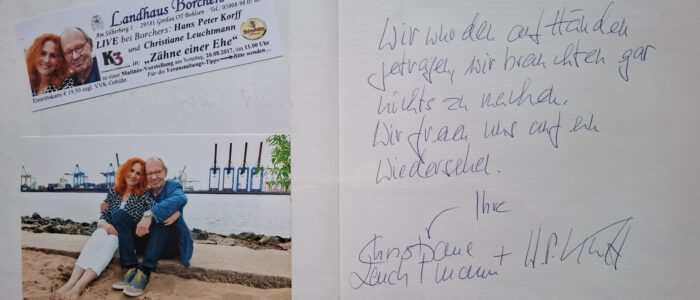 Landhaus Borchers
Am Silberberg 1 · 29581 Gerdau OT Bohlsen
LIVE bei Borchers: Hans Peter Korff
und Christiane Leuchtmann
K3
in: „Zähne einer Ehe“
in einer Matinée-Vorstellung am Sonntag, 20.08.2017, um 11.00 Uhr
Eintrittskarte € 19,50 zzgl. VVK-Gebühr
Für die Veranstaltungs-Tipps
Bitte wenden…
Wir wurden auf Händen
getragen, wir brauchten gar
nichts zu machen.
Wir freuen uns auf ein
Wiedersehen.
Ihre
Christiane
Leuchtmann + H.P. Korff